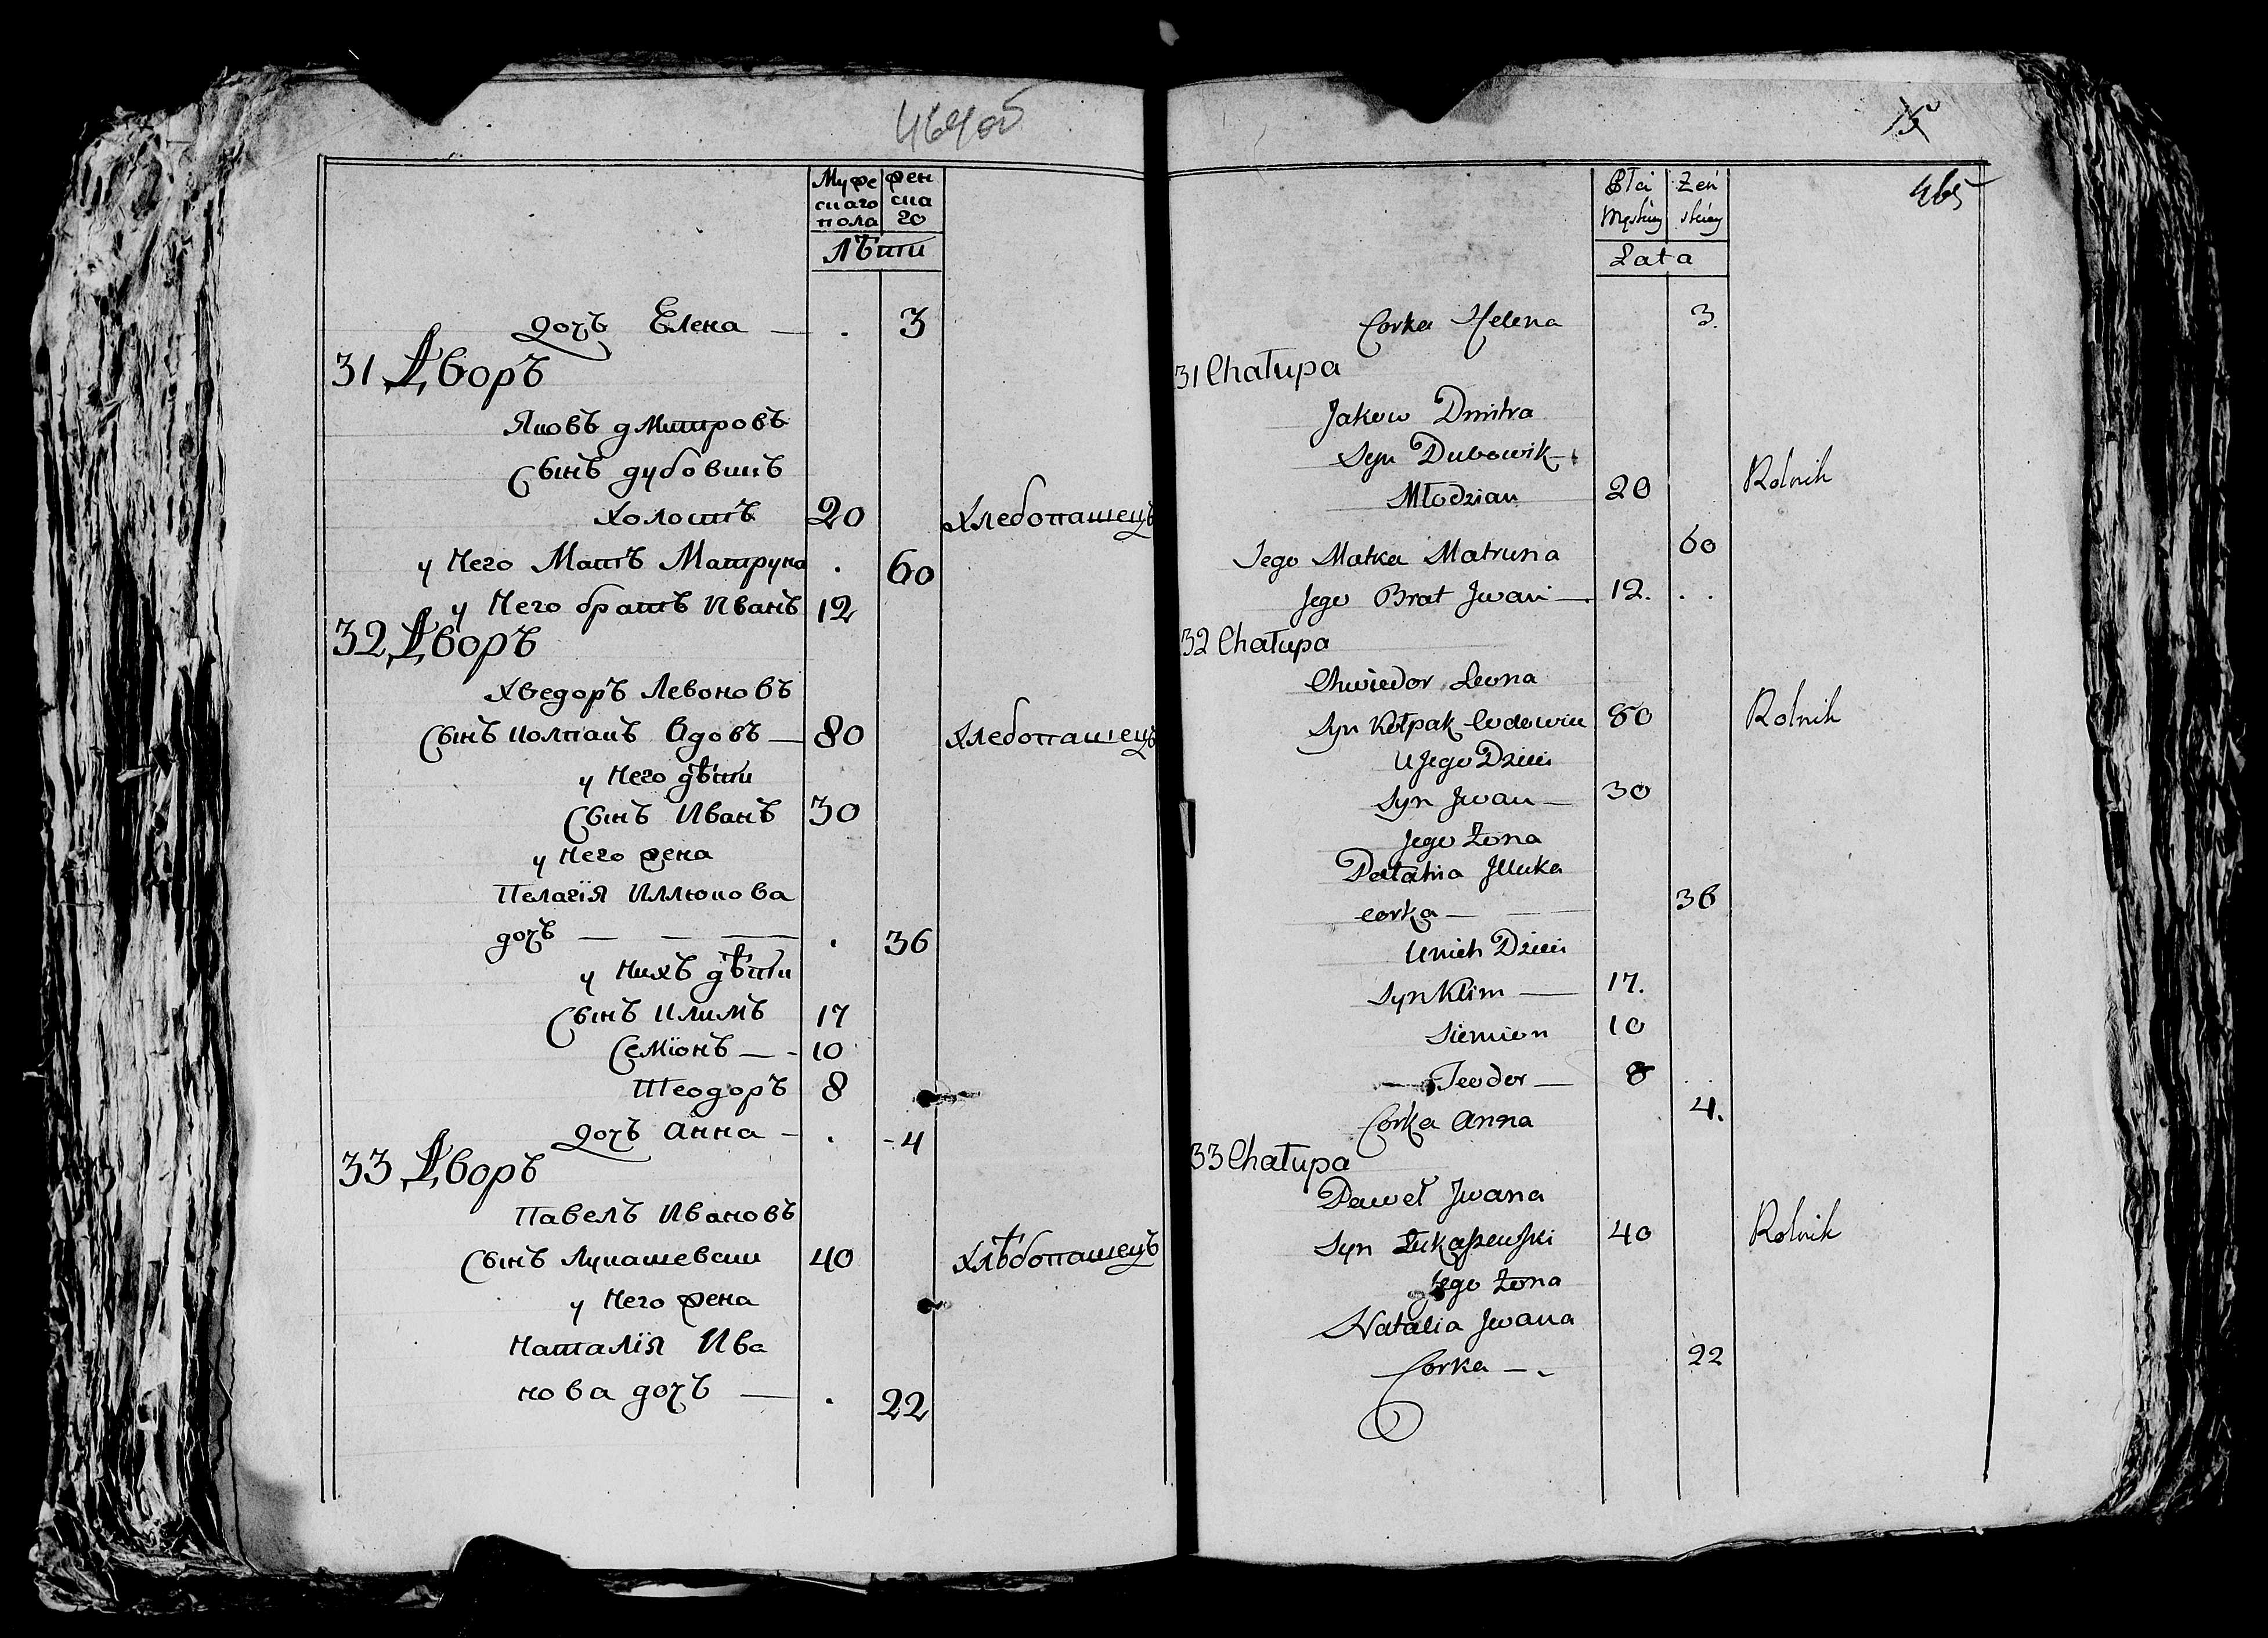 464об
Муже
скаго
пола
жен
ска
го
Лѣти
дочъ Елена — . 3
31 Дворъ
Яковъ дмитровъ
Сынъ дубовикъ
холостъ 20 хлебопашецъ
у него Матъ Матруна . 60
у него братъ Иванъ 12
32 Дворъ
Хведоръ Левоновъ
Сынъ колпакъ Вдовъ — 80 хлебопашецъ
у него дѣти
Сынъ Иванъ 30
у него жена
Пелагія Иллюкова
дочъ — — — . 36
у нихъ дѣти
Сынъ климъ 17
Семіонъ — - 10
Теодоръ 8
дочъ анна - . - 4
33 Дворъ
Павелъ Ивановъ
Сынъ Лукашевски 40 хлѣбопашецъ
у него жена
Наталія Ива
нова дочъ — . 22
15
465
Płci
Męskiey
Żeń
skiey
Lata
Corka Helena 3.
31 Chałupa
Jakow Dmitra
Syn Dubowik
Młodzian 20 Rolnik
Jego Matka Matruna 60
Jego Brat Jwan — 12. . .
32 Chałupa
Chwiedor Leona
Syn Kołpak Wdowiec 80 Rolnik
U Jego Dzieci
Syn Jwan — 30
Jego Żona
Pałahia Jlluka
corka — — 36
U nich Dzieci
Syn Klim — 17.
Siemion 10
Teodor — 8 . .
Corka Anna 4.
33 Chałupa
Paweł Jwana
Syn Łukaszewski 40 Rolnik
Jego Żona
Natalia Jwana
Corka — . 22